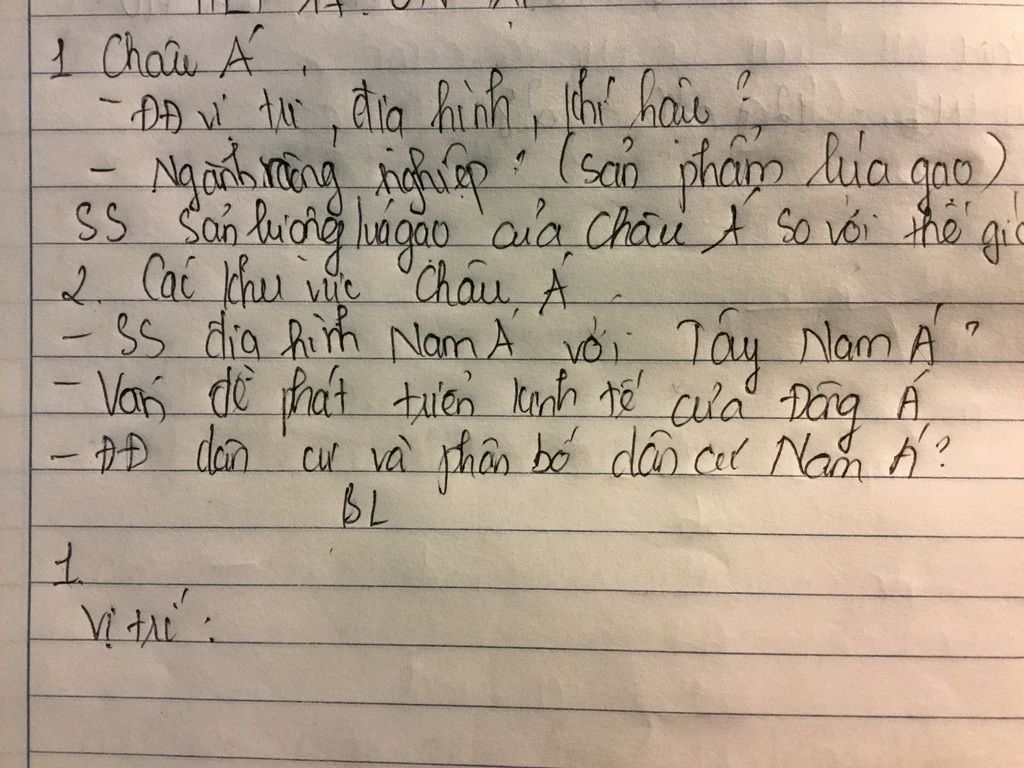 1 Châu Á.
- ĐĐ vị trí, địa hình, khí hậu?
- Ngành nông nghiệp? (sản phẩm lúa gạo)
SS sản lượng lúa gạo của Châu Á so với thế giớ
2. Các khu vực Châu Á.
- SS địa hình Nam Á với Tây Nam Á?
- Vấn đề phát triển kinh tế của Đông Á
- ĐĐ dân cư và phân bố dân cư Nam Á?
BL
1.
Vị trí: